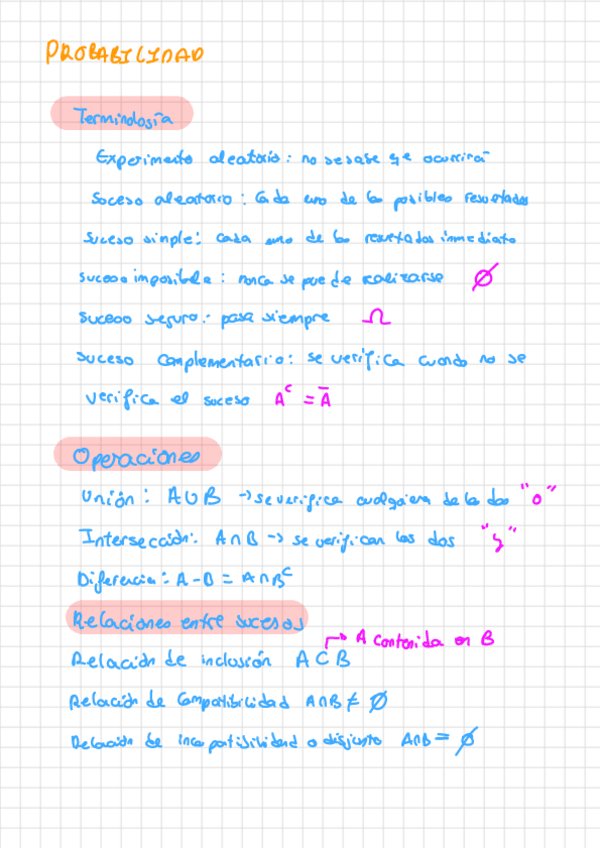 PROBABILIDAD
Terminología
Experimento aleatorio: no se sabe qe ocurrirá
Suceso aleatorio: Cada uno de los posibles resultados
Suceso simple: cada uno de los resultados inmediato
suceso imposible: nunca se puede realizarse ∅
Suceso seguro: pasa siempre Ω
Suceso complementario: se verifica cuando no se
verifica el suceso Aᶜ = Ā
Operaciones
Unión: A∪B → se verifica cualquiera de los dos "o"
Intersección: A∩B → se verifican los dos "y"
Diferencia: A-B = A∩Bᶜ
Relaciones entre sucesos
↱ A contenida en B
Relación de inclusión A⊂B
Relación de Compatibilidad A∩B ≠ ∅
Relación de Incompatibilidad o disjunto A∩B = ∅